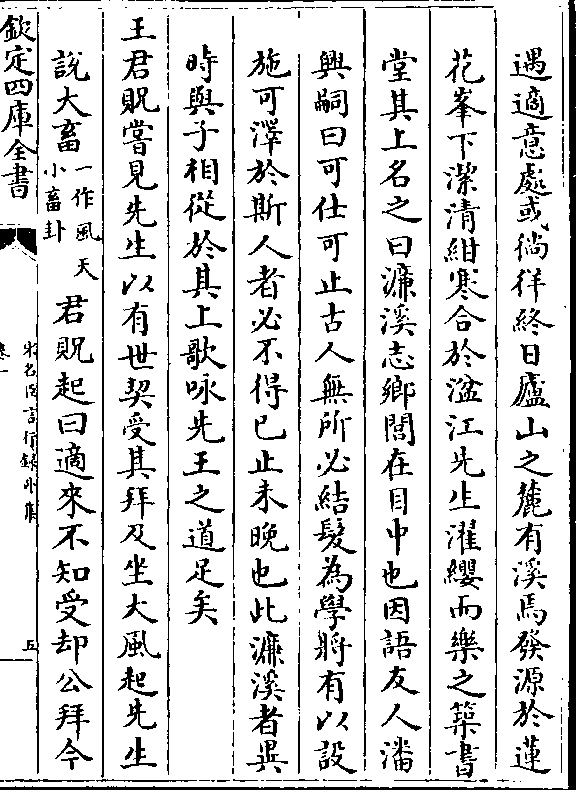 遇適意處或徜徉終日廬山之麓有溪焉發源於蓮
花峯下潔清紺寒合於湓江先生濯纓而樂之築書
堂其上名之曰濂溪志鄉閭在目中也因語友人潘
興嗣曰可仕可止古人無所必結髮為學將有以設
施可澤於斯人者必不得已止未晚也此濂溪者異
時與子相從於其上歌咏先王之道足矣
王君貺嘗見先生以有世契受其拜及坐大風起先生
說大畜
一作風天
小畜卦
君貺起曰適來不知受却公拜今
欽定四庫全書
宋名臣言行錄外集
卷一
五